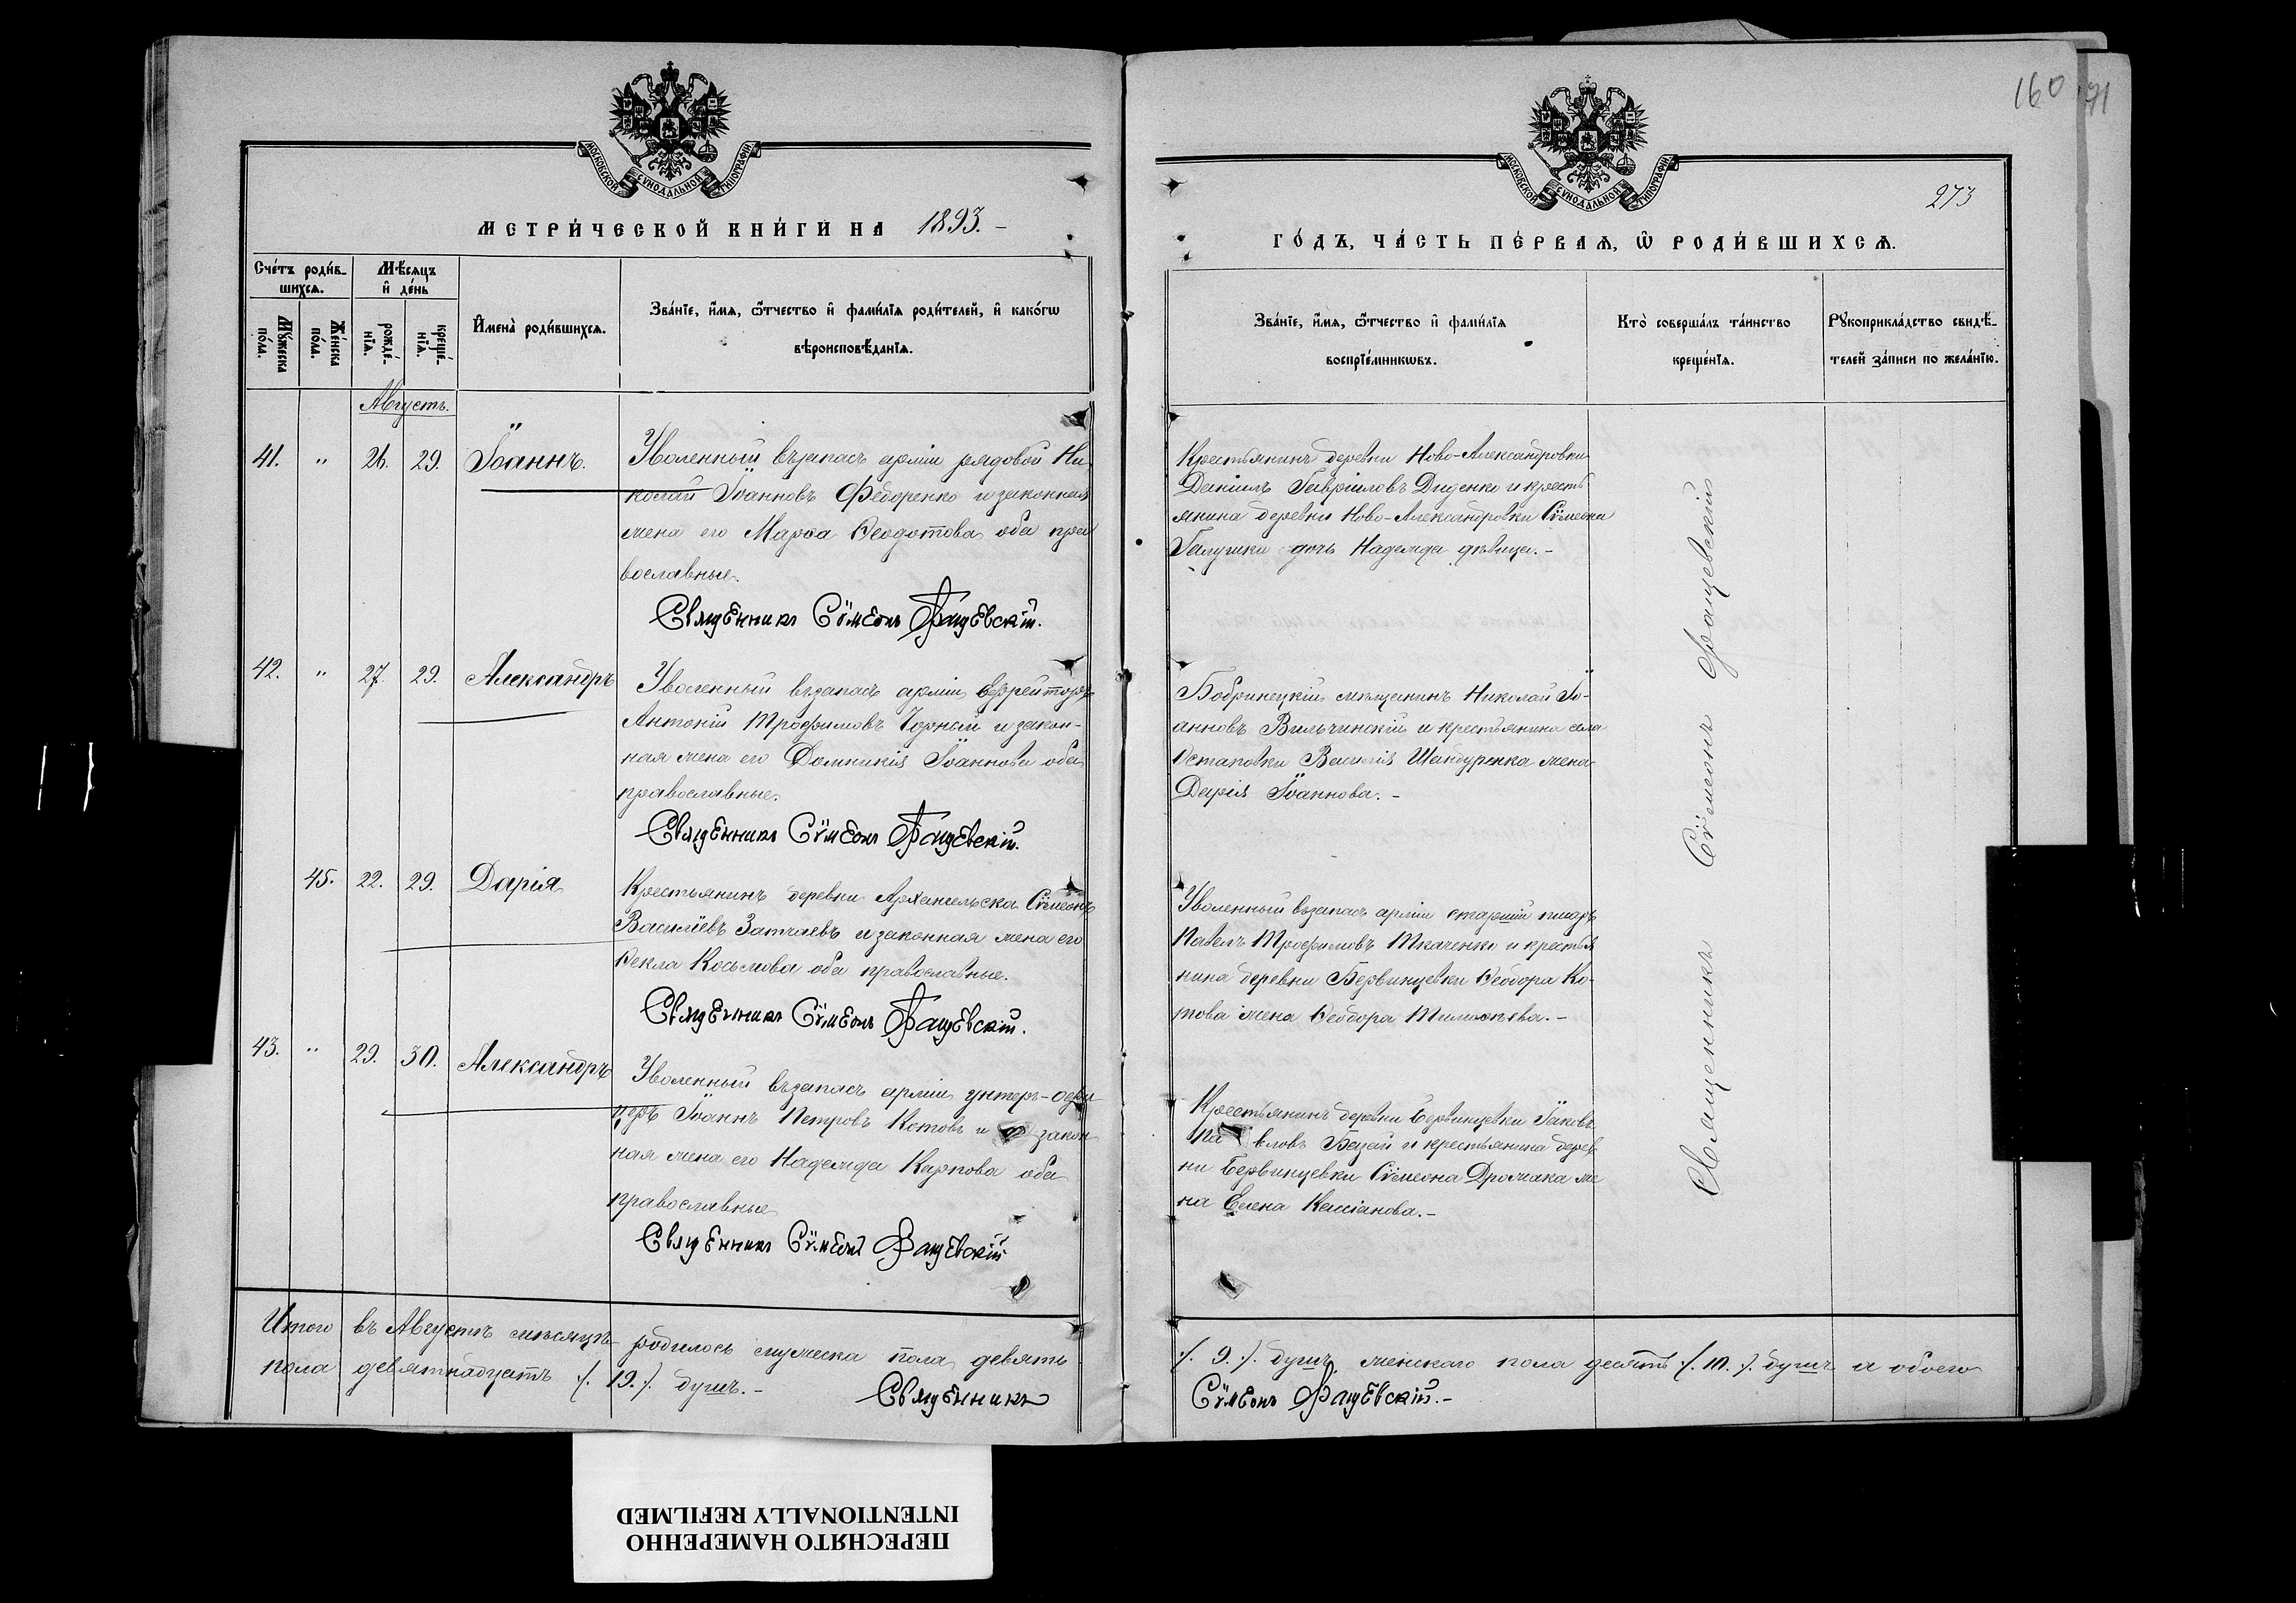 160
71
273
МОСКОВСКОЙ СѴНОДАЛЬНОЙ ТИПОГРАФІИ
МОСКОВСКОЙ СѴНОДАЛЬНОЙ ТИПОГРАФІИ
МЕТРИ́ЧЕСКОЙ КНИ́ГИ НА 1893.-
ГО́ДЪ, ЧА́СТЬ ПЕ́РВАѦ, Ѡ҆ РОДИ́ВШИХСѦ.
Сче́тъ роди́в-
шихсѧ.
Мѣ́сяцъ
и҆ де́нь
Мꙋ́жеска по́ла.
Же́нска по́ла.
рожде́-
нїѧ.
креще́-
нїѧ.
И҆мена̀ роди́вшихсѧ.
Зва́нїе, и҆́мѧ, ѻ҆́тчество и҆ фами́лїѧ роди́телей, и҆ како́гѡ
вѣроисповѣ́данїѧ.
Зва́нїе, и҆́мѧ, ѻ҆́тчество и҆ фами́лїѧ
воспрїе́мникѡвъ.
Кто̀ соверша́лъ та́инство
креще́нїѧ.
Рꙋкоприкла́дство свидѣ́-
телей за́писи по жела́нїю.
Августъ.
41. " 26. 29. Іоаннъ.
Уволенный въ запасъ арміи рядовой Ни
колай Іоанновъ Федоренко и законная
жена его Марѳа Ѳеодотова оба пра
вославные.
Священникъ Сѵмеонъ Фащевскій.
Крестьянинъ деревни Ново-Александровки
Даніилъ Гавріиловъ Диденко и кресть
янина деревни Ново-Александровки Сѵмеона
Галушки дочь Надежда дѣвица.-
42. " 27. 29. Александръ
Уволенный въ запасъ арміи ефрейторъ
Антоній Трофимовъ Чорный и закон-
ная жена его Домникія Іоаннова оба
православные.
Священникъ Сѵмеонъ Фащевскій.
Бобринецкій мѣщанинъ Николай Іо-
анновъ Вильчинскій и крестьянина села
Остаповки Василія жена
Дарія Іоаннова.-
45. 22. 29. Дарія
Крестьянинъ деревни Архангельска Сѵмеонъ
Василіевъ и законная жена его
Ѳекла Косьмова оба православные.
Священникъ Сѵмеонъ Фащевскій.
Уволенный въ запасъ арміи старшій писарь
Павелъ Трофимовъ Ткаченко и крестья
нина деревни Бервинцевки Ѳеодора Ко-
това жена Ѳеодора.-
43. " 29. 30. Александръ
Уволенный въ запасъ арміи унтеръ-офи
церъ Іоаннъ Петровъ Котовъ и закон
ная жена его Надежда Карпова оба
православные
Священникъ Сѵмеонъ Фащевскій
Крестьянинъ деревни Бервинцевки Іаковъ
Па вловъ Базай и крестьянина дерев
ни Бервинцевки Сѵмеона Дрожака же
на Елена Кассіанова.-
Священникъ Сѵмеонъ Фащевскій
Итого въ Августѣ мѣсяцѣ родилось мужеска пола девять
/. 9. /. душъ, женскаго пола десять /. 10. /. душъ а обоего
пола девятнадцать /. 19. /. душъ.-
Священникъ
Сѵмеонъ Фащевскій.-
ПЕРЕСНЯТО НАМЕРЕННО
INTENTIONALLY REFILMED